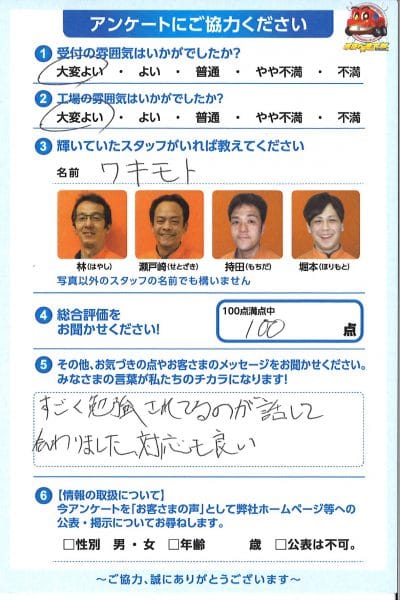 アンケートにご協力ください
1 受付の雰囲気はいかがでしたか?
大変よい ・ よい ・ 普通 ・ やや不満 ・ 不満
2 工場の雰囲気はいかがでしたか?
大変よい ・ よい ・ 普通 ・ やや不満 ・ 不満
3 輝いていたスタッフがいれば教えてください
名前 ワキモト
林(はやし) 瀬戸崎(せとざき) 持田(もちだ) 堀本(ほりもと)
写真以外のスタッフの名前でも構いません
4 総合評価をお聞かせください!
100点満点中
100 点
5 その他、お気づきの点やお客さまのメッセージをお聞かせください。
みなさまの言葉が私たちのチカラになります!
すごく勉強されてるのが話して
わかりました、対応も良い
6 【情報の取扱について】
今アンケートを「お客さまの声」として弊社ホームページ等への
公表・掲示についてお尋ねします。
□性別 男・女 □年齢 歳 □公表は不可。
～ご協力、誠にありがとうございます～